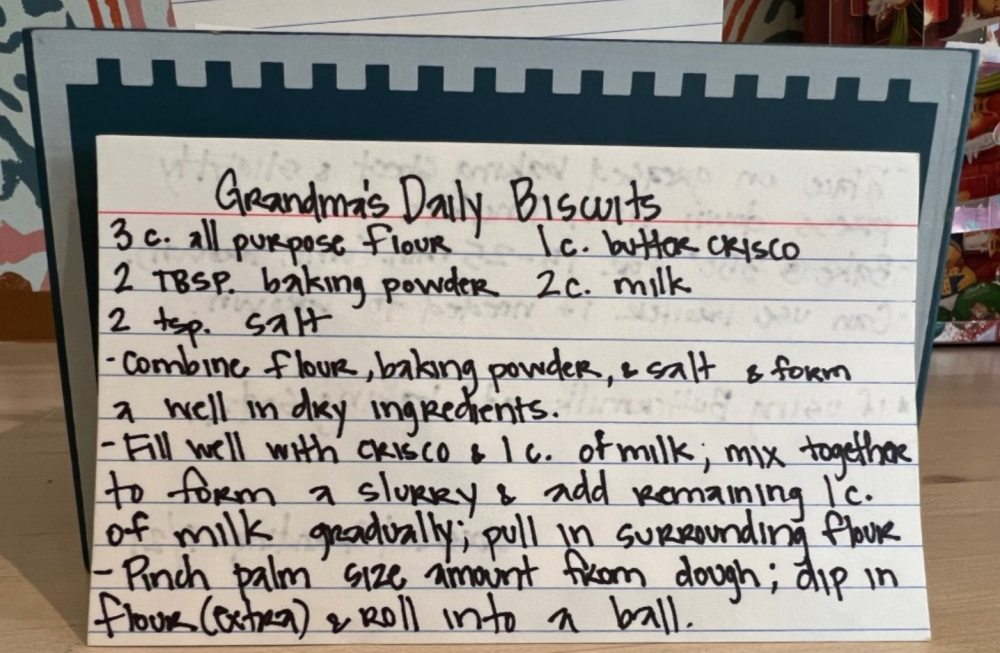 Grandma's Daily Biscuits
3 c. all purpose flour 1 c. butter crisco
2 TBSP. baking powder 2 c. milk
2 tsp. salt
- Combine flour, baking powder, & salt & form
a well in dry ingredients.
- Fill well with crisco & 1 c. of milk; mix together
to form a slurry & add remaining 1 c.
of milk gradually; pull in surrounding flour
- Pinch palm size amount from dough; dip in
flour (extra) & roll into a ball.